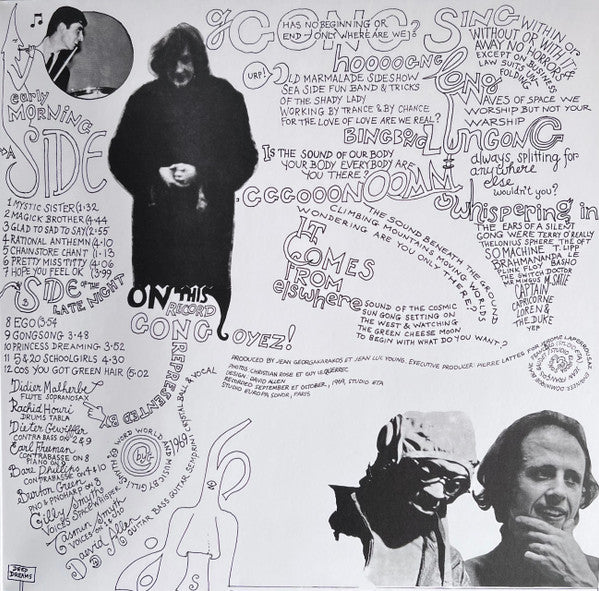 GONG SING
HAS NO BEGINNING OR
END → ONLY WHERE ARE WE?
WITHIN OR
WITHOUT OR WITH IT
AWAY NO HORRORS OF
EXCEPT ON BUSINESS
LAW SUITS UN-
FOLDING
hooooong
long
URP!
OLD MARMALADE SIDESHOW
SEA SIDE FUN BAND & TRICKS
OF THE SHADY LADY
WORKING BY TRANCE & BY CHANCE
FOR THE LOVE OF LOVE ARE WE REAL?
WAVES OF SPACE WE
WORSHIP BUT NOT YOUR
WARSHIP
BINGBONG LUNGONG
IS THE SOUND OF OUR BODY
YOUR BODY EVERYBODY ARE
YOU THERE?
always, splitting for
anywhere
else
wouldn't you?
GGGOOONOOMN
whispering in
THE EARS OF A SILENT
GONG WERE TERRY O'REALLY
THELONIUS SPHERE THE OFT
SO MACHINE T. LIPP
BRAHMANANDA LE
PLINK FLOY BASHO
THE SWITCH DOCTOR
MR MINGUS M. SATIE
CAPTAIN
CAPRICORNE
LOREN &
THE DUKE
YEP
THE SOUND BENEATH THE GROUND
CLIMBING MOUNTAINS MOVING WORLDS &
WONDERING ARE YOU ONLY THERE?
IT
COMES
FROM
elsewhere
SOUND OF THE COSMIC
SUN GONG SETTING ON
THE WEST & WATCHING
THE GREEN CHEESE MOON
TO BEGIN WITH WHAT DO YOU WANT?
early
MORNING
A SIDE
1 MYSTIC SISTER (1·32
2 MAGICK BROTHER (4·44
3 GLAD TO SAD TO SAY (2·55
4 RATIONAL ANTHEMN (4·10
5 CHAINSTORE CHANT (1·13
6 PRETTY MISS TITTY (4·06
7 HOPE YOU FEEL OK (3·99
SIDE OF THE
LATE NIGHT
8 EGO (3·54
9 GONGSONG 3·48
10 PRINCESS DREAMING 3·52
11 5 & 20 SCHOOLGIRLS 4·30
12 COS YOU GOT GREEN HAIR (5·02
ON THIS
RECORD
GONG
REPRESENTED
BY
OYEZ!
PRODUCED BY JEAN GEORGAKARAKOS ET JEAN LUC YOUNG. EXECUTIVE PRODUCER: PIERRE LATTES
PHOTOS CHRISTIAN ROSE ET GUY LE QUERREC
DESIGN: DAVID ALLEN
RECORDED SEPTEMBER ET OCTOBER, 1969, STUDIO ETA
STUDIO EUROPA SONOR, PARIS
Didier Malherbe
FLUTE SOPRANOSAX
Rachid Houri
DRUMS TABLA
Dieter Gewiffler
CONTRA BASS ON 2 & 9
Earl Freeman
CONTRABASSE ON 8
PIANO ON 8
Barre Phillips
CONTRABASSE ON 4 & 10
Burton Green
PNO & PNOHARP ON 8
Gilly Smyth
VOICES SPACEWHISPER
Tasmin Smyth
VOICES ON
David Allen
GUITAR BASS GUITAR
CRYSTAL BALL & VOCAL
WORD WORLD AND MUSIC BY GILLI SMYTH
by
1969
DEED
DREAMS